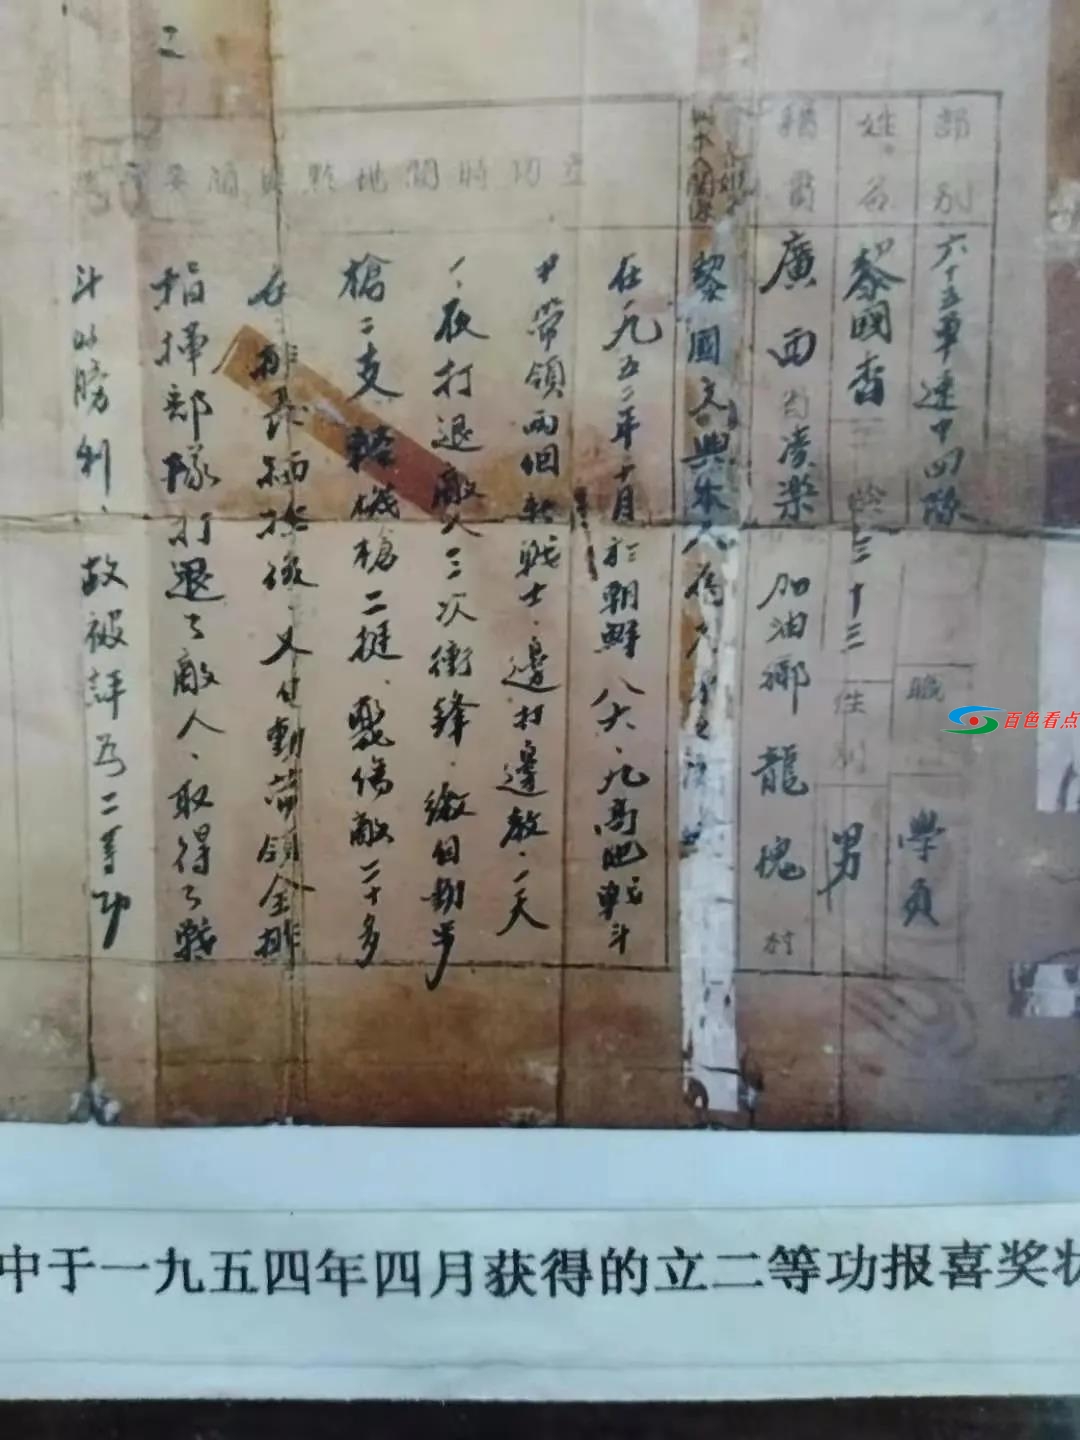 部別 六十五軍速中四隊 職 學員
姓名 黎國香 年齡 三十三 性別 男
籍貫 廣西省凌樂 加油鄉 龍槐村
與本人關係 黎國文與本人為
立功時間地點與簡要
在一九五二年十月於朝鮮 八六·九高地戰斗
中帶領兩個新戰士、邊打邊教、一天
一夜打退敵人三次衝鋒、繳自動步
槍二支、輕機槍二挺、斃傷敵二十多
在排長犧 後、又 動帶領全排
指揮部隊打退了敵人、取得了戰
斗的勝利、故被評為二等功
百色看点
中于一九五四年四月获得的立二等功报喜奖状